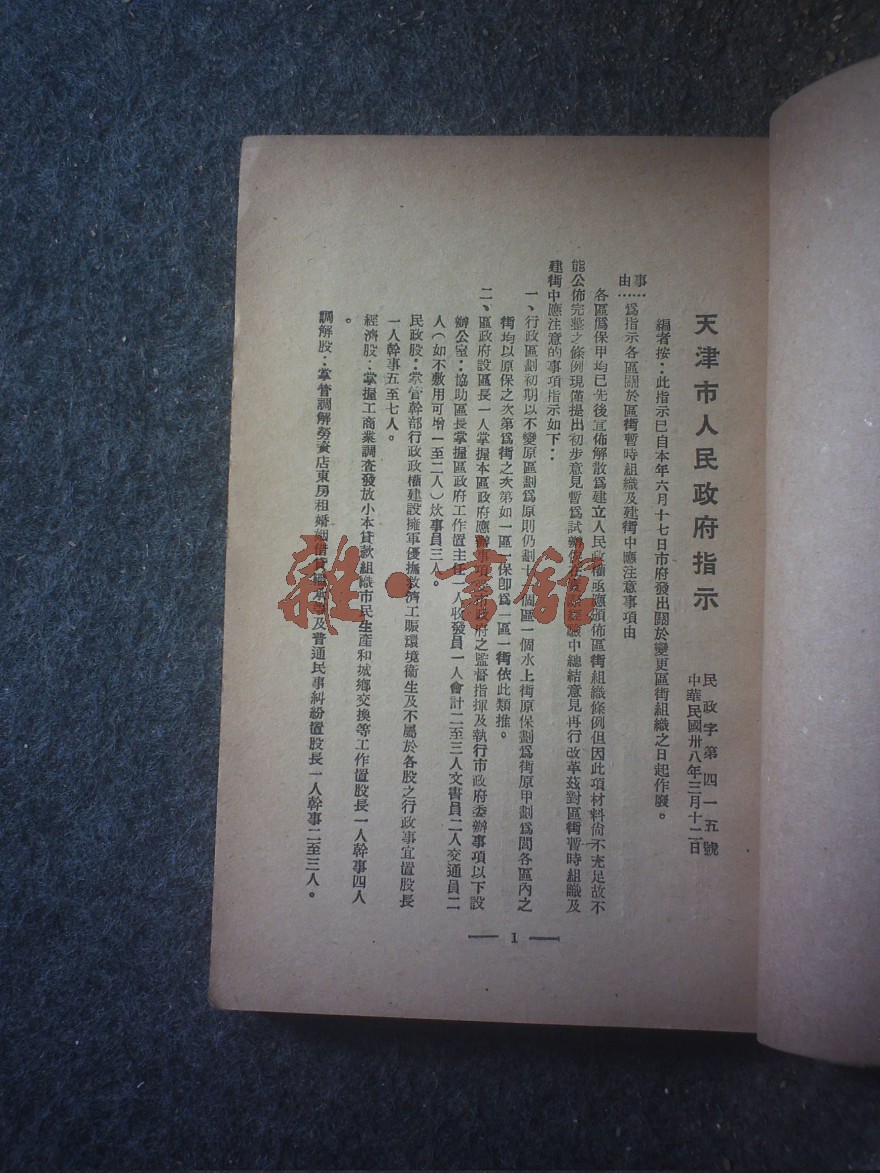 天津市人民政府指示
民政字第四一五號
中華民國卅八年三月十二日
編者按：此指示已自本年六月十七日市府發出關於變更區街組織之日起作廢。
事由……爲指示各區關於區街暫時組織及建街中應注意事項由
各區僞保甲均已先後宣佈解散爲建立人民政權亟應頒佈區街組織條例但因此項材料尙不充足故不
能公佈完整之條例現僅提出初步意見暫爲試辦中總結意見再行改革茲對區街暫時組織及
建街中應注意的事項指示如下：
一、行政區劃初期以不變原區劃爲原則仍劃十個區一個水上街原保劃爲街原甲劃爲閭各區內之
街均以原保之次第爲街之次第如一區一保卽爲一區一街依此類推。
二、區政府設區長一人掌握本區政府應辦事項市政府之監督指揮及執行市政府委辦事項以下設
辦公室：協助區長掌握區政府工作置主任一人收發員一人會計二至三人文書員二人交通員二
人（如不敷用可增一至二人）炊事員三人。
民政股：掌管幹部行政政權建設擁軍優撫救濟工賑環境衛生及不屬於各股之行政事宜置股長
一人幹事五至七人。
經濟股：掌握工商業調查發放小本貸款組織市民生產和城鄉交換等工作置股長一人幹事四人
。
調解股：掌管調解勞資店東房租婚姻借貸及普通民事糾紛置股長一人幹事二至三人。
— 1 —
雜·書館